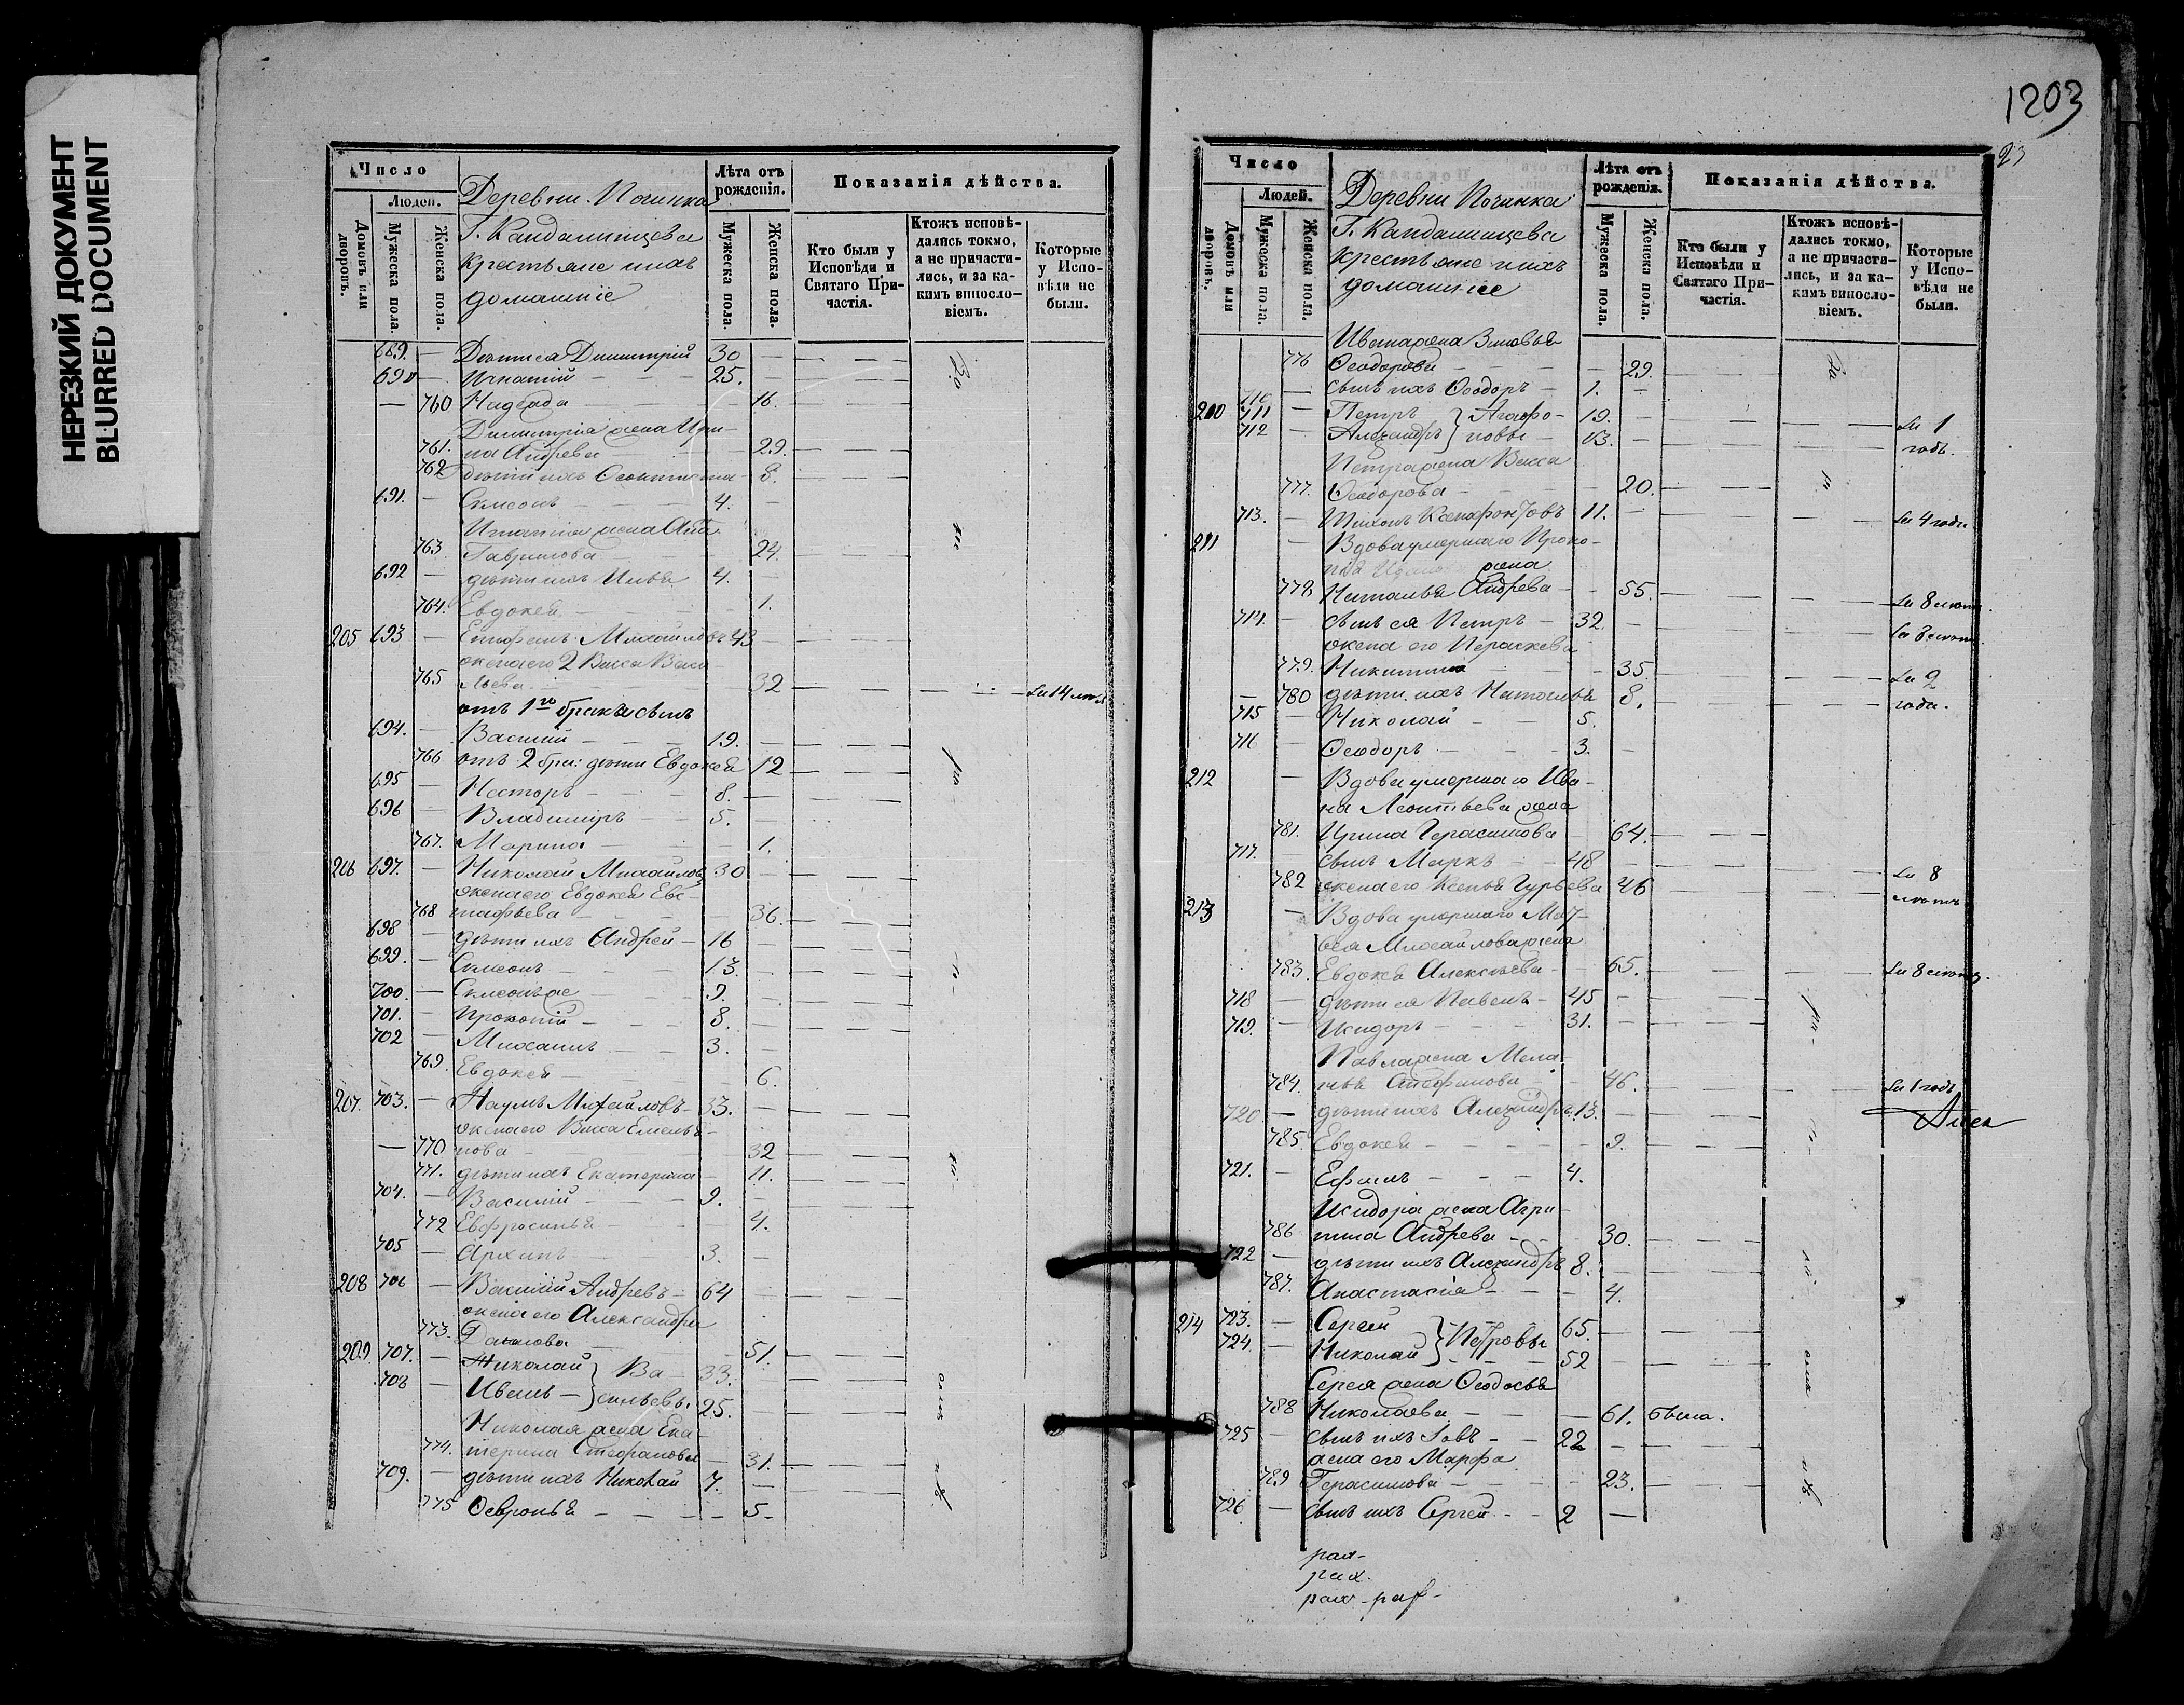 НЕРЕЗКИЙ ДОКУМЕНТ
BLURRED DOCUMENT
Число
Людей.
Домовъ или дворовъ.
Мужеска пола.
Женска пола.
Деревни Починка
Г. Кандалинцева
крестьяне и ихъ
домашніе
Лѣта отъ рожденія.
Мужеска пола.
Женска пола.
Показанія дѣйства.
Кто были у Исповѣди и Святаго Причастія.
Ктожъ исповѣдались токмо, а не причастились, и за какимъ винословіемъ.
Которые у Исповѣди не были.
689. — Дѣти ея Димитрій 30 —
690 — Игнатій — — — 25. —
— 760 Надежда — 16.
Димитрія жена Ири-
761. на Андреева — 29.
762 дѣти ихъ Ѳеоктиста — 8.
691. — Симеонъ — — — 4. —
Игнатія жена
763. Гаврилова 24.
692 — дѣти ихъ 4. —
764. Евдокея — — — 1.
205 693 — Михайловъ 43
жена его 2 Васса Васи-
765 льева — 32 — — — За 14 лѣтъ
отъ 1го брака сынъ
694. — Василий — — — 19. —
766 отъ 2 бра: дѣти Евдокея 12
695 — Несторъ — — — 8. —
696 — Владимиръ — — 5. —
767. Марина — — — 1.
206 697. — Николай Михайловъ 30 —
жена его Евдокея Евс-
768 тафьева — — — 36.
698 — дѣти ихъ Андрей — 16 —
699. — Симеонъ — — — 13. —
700. — Симеонъ же — 9. —
701. — Прокопій — — 8. —
702 — Михаилъ — — 3. —
769. Евдокея — — — 6.
207. 703. — Наумъ Михайловъ — 33. —
жена его Васса Емелья-
— 770 нова — — — 32
771. дѣти ихъ Екатерина — 11.
704. — Василий — — 9. —
772 Евфросинья — — 4.
705 — Архипъ — — 3. —
208 706 — Василій Андреевъ — 64 —
жена его Александра
773. Данилова — 51.
209. 707. — Николай } Ва — 33. —
708 — Иванъ — } сильевы 25. —
Николая жена Ека-
774. терина Стефанова — 31.
709. — дѣти ихъ Николай 7. —
775 Ѳевронья — — — 5 —
1203
23
Число
Людей.
Домовъ или дворовъ.
Мужеска пола.
Женска пола.
Деревни Починка
Г. Кандалинцева
крестьяне и ихъ
домашніе
Лѣта отъ рожденія.
Мужеска пола.
Женска пола.
Показанія дѣйства.
Кто были у Исповѣди и Святаго Причастія.
Ктожъ исповѣдались токмо, а не причастились, и за какимъ винословіемъ.
Которые у Исповѣди не были.
Ивана жена Зиновья
776 Ѳеодорова — — 29.
710 — сынъ ихъ Ѳеодоръ — 1. —
210 711 — Петръ } Агафо- 19. —
712 — Александръ } новы — 13. — За 1 годъ.
Петра жена Васса
777. Ѳеодорова — — 20.
713. — 11. — За 4 года
211 — Вдова умершаго Проко-
жена
778 Наталья Андреева — 55. За 8 лѣтъ.
714. — сынъ ея Петръ — 32 — За 8 лѣтъ
жена его Параскева
779. Никитина — 35. За 2
— 780 дѣти ихъ Наталья 8. года.
715 — Николай — — 5.
716 — Ѳеодоръ — — 3. —
212 — Вдова умершаго Ива-
на Леонтьева жена
781. Ирина Герасимова 64.
717. — сынъ Маркъ — 48 — За 8
782 жена его Ксенья Гурьева 46 лѣтъ
213 — Вдова умершаго Мат-
вея Михайлова жена
783. Евдокея Алексѣева — 65. За 8 лѣтъ.
718 — дѣти ея Павелъ — 45 —
719. — Исидоръ — — 31. —
Павла жена Мела-
784. нья 46. За 1 годъ
720 — дѣти ихъ Александръ 13. —
785. Евдокея — — — 9.
721. — Ефимъ — — — 4.
Исидора жена Агри-
786 пина Андреева — — 30.
722 — дѣти ихъ Александръ 8. —
787. Анастасія — — — 4.
214 723. — Сергей } Петровы 65. —
724. — Николай } 52 —
Сергея жена Ѳеодосья
788 Николаева — — — 61. была.
725 — сынъ ихъ Іовъ — — 22 —
жена его Марфа
789 Герасимова — — — 23.
726 — сынъ ихъ Сергей — — 2 —